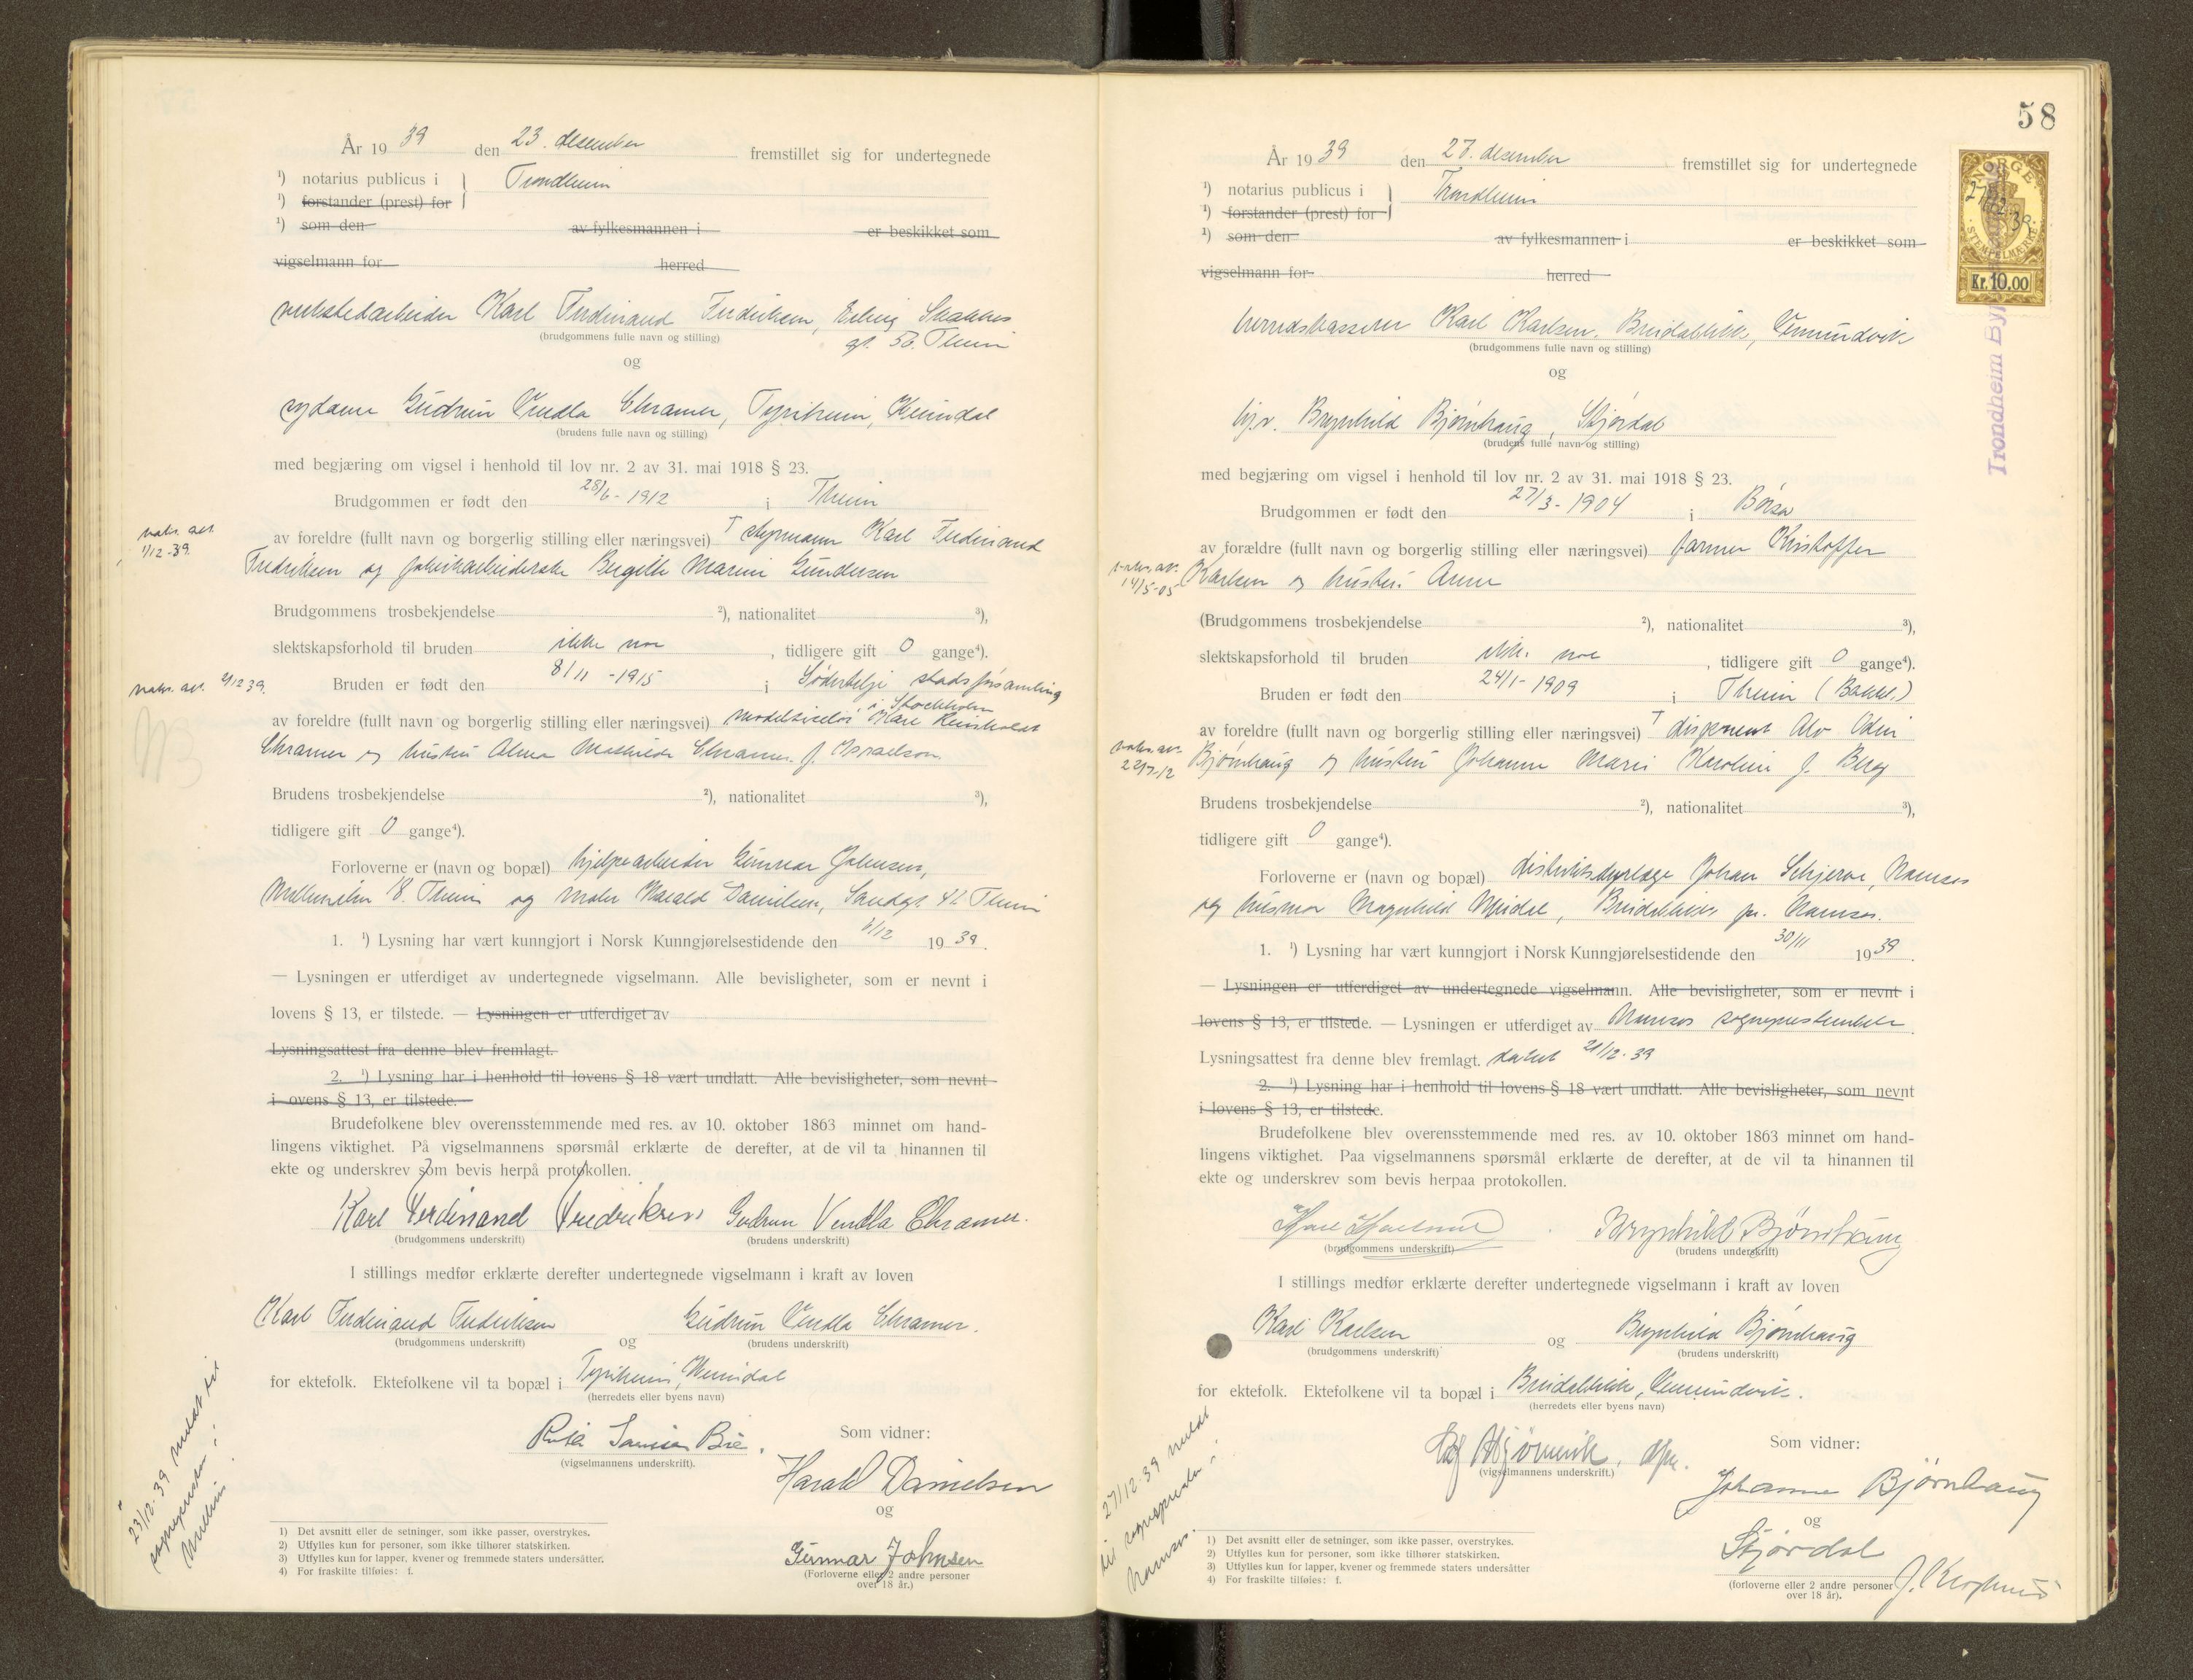 År 19 39 den 23. desember fremstillet sig for undertegnede
1) notarius publicus i Trondheim
1) forstander (prest) for
1) som den av fylkesmannen i er beskikket som
vigselmann for herred
verkstedarbeider Karl Ferdinand Fredriksen, Erling Skakkes
gt. 56. T.heim
(brudgommens fulle navn og stilling)
og
sydame Gudrun Vendla Chramer, Tyriheim, Heimdal
(brudens fulle navn og stilling)
med begjæring om vigsel i henhold til lov nr. 2 av 31. mai 1918 § 23.
Brudgommen er født den 28/6 - 1912 i T.heim
navn. att.
1/12-39.
av foreldre (fullt navn og borgerlig stilling eller næringsvei) † styrmann Karl Ferdinand
Fredriksen og fabrikkarbeiderske Bergitte Marine Gundersen
Brudgommens trosbekjendelse 2), nationalitet 3),
slektskapsforhold til bruden ikke noe, tidligere gift 0 gange4).
Bruden er født den 8/11 - 1915 i Södertelje stadsförsamling
Stockholm
av foreldre (fullt navn og borgerlig stilling eller næringsvei)
Chramer og hustru Alma Mathilde Chramer f. Israelson.
Brudens trosbekjendelse 2), nationalitet 3),
tidligere gift 0 gange4).
Forloverne er (navn og bopæl) hjelpearbeider Gunnar Johnsen,
18. T.heim og maler Harald Danielsen, Sandgt. 42 T.heim
1. 1) Lysning har vært kunngjort i Norsk Kunngjørelsestidende den 1/12 19 39.
— Lysningen er utferdiget av undertegnede vigselmann. Alle bevisligheter, som er nevnt i
lovens § 13, er tilstede. — Lysningen er utferdiget av
Lysningsattest fra denne blev fremlagt.
2. 1) Lysning har i henhold til lovens § 18 vært undlatt. Alle bevisligheter, som nevnt
i ovens § 13, er tilstede.
Brudefolkene blev overensstemmende med res. av 10. oktober 1863 minnet om hand-
lingens viktighet. På vigselmannens spørsmål erklærte de derefter, at de vil ta hinannen til
ekte og underskrev som bevis herpå protokollen.
Karl Ferdinand Fredriksen Gudrun Vendla Chramer.
(brudgommens underskrift) (brudens underskrift)
I stillings medfør erklærte derefter undertegnede vigselmann i kraft av loven
Karl Ferdinand Fredriksen og Gudrun Vendla Chramer.
(brudgommens underskrift) (brudens underskrift)
for ektefolk. Ektefolkene vil ta bopæl i Tyriheim, Heimdal
(herredets eller byens navn)
(vigselmannens underskrift).
Som vidner:
Harald Danielsen
og
Gunnar Johnsen
(Forloverne eller 2 andre personer
over 18 år.)
23/12-39 meldt til
sognepresten i
1) Det avsnitt eller de setninger, som ikke passer, overstrykes.
2) Utfylles kun for personer, som ikke tilhører statskirken.
3) Utfylles kun for lapper, kvener og fremmede staters undersåtter.
4) For fraskilte tilføies: f.
58
NORGE
STEMPELMERKE
Kr. 10.00
27/12-39.
Trondheim
År 19 39 den 27. desember fremstillet sig for undertegnede
1) notarius publicus i Trondheim
1) forstander (prest) for
1) som den av fylkesmannen i er beskikket som
vigselmann for herred
herredskasserer Karl Karlsen, Breidablikk, Vemundvik
(brudgommens fulle navn og stilling)
og
frk. Brynhild Bjørnhaug, Stjørdal
(brudens fulle navn og stilling)
med begjæring om vigsel i henhold til lov nr. 2 av 31. mai 1918 § 23.
Brudgommen er født den 27/3 - 1904 i Børsa
av forældre (fullt navn og borgerlig stilling eller næringsvei) farmer Kristoffer
navn. att.
14/5-05
Karlsen og hustru Anne
(Brudgommens trosbekjendelse 2), nationalitet 3),
slektskapsforhold til bruden ikke noe, tidligere gift 0 gange4).
Bruden er født den 24/1 - 1909 i T.heim (Bakkl.)
av foreldre (fullt navn og borgerlig stilling eller næringsvei) † disponent Alv Odin
navn. att.
Bjørnhaug og hustru Johanne Marie Karoline f. Berg
Brudens trosbekjendelse 2), nationalitet 3),
tidligere gift 0 gange4).
Forloverne er (navn og bopæl) distriktsdyrlæge Johan Schjerve, Namsos
og husmor Magnhild Meidal, Breidablikk pr. Namsos.
1. 1) Lysning har vært kunngjort i Norsk Kunngjørelsestidende den 30/11 19 39.
— Lysningen er utferdiget av undertegnede vigselmann. Alle bevisligheter, som er nevnt i
lovens § 13, er tilstede. — Lysningen er utferdiget av Namsos sogneprestembete
Lysningsattest fra denne blev fremlagt. datert 21/12-39
2. 1) Lysning har i henhold til lovens § 18 vært undlatt. Alle bevisligheter, som nevnt
i lovens § 13, er tilstede.
Brudefolkene blev overensstemmende med res. av 10. oktober 1863 minnet om hand-
lingens viktighet. Paa vigselmannens spørsmål erklærte de derefter, at de vil ta hinannen til
ekte og underskrev som bevis herpaa protokollen.
Karl Karlsen Brynhild Bjørnhaug
(brudgommens underskrift) (brudens underskrift)
I stillings medfør erklærte derefter undertegnede vigselmann i kraft av loven
Karl Karlsen og Brynhild Bjørnhaug
(brudgommens underskrift) (brudens underskrift)
for ektefolk. Ektefolkene vil ta bopæl i Breidablikk, Vemundvik.
(herredets eller byens navn)
(vigselmannens underskrift.)
Som vidner:
Johanne Bjørnhaug
og
Stjørdal
(forloverne eller 2 andre personer
over 18 år).
27/12-39 meldt
til sognepresten i
Namsos.
1) Det avsnitt eller de setninger, som ikke passer, overstrykes.
2) Utfylles kun for personer, som ikke tilhører statskirken.
3) Utfylles kun for lapper, kvener og fremmede staters undersåtter
4) For fraskilte tilføies: f.